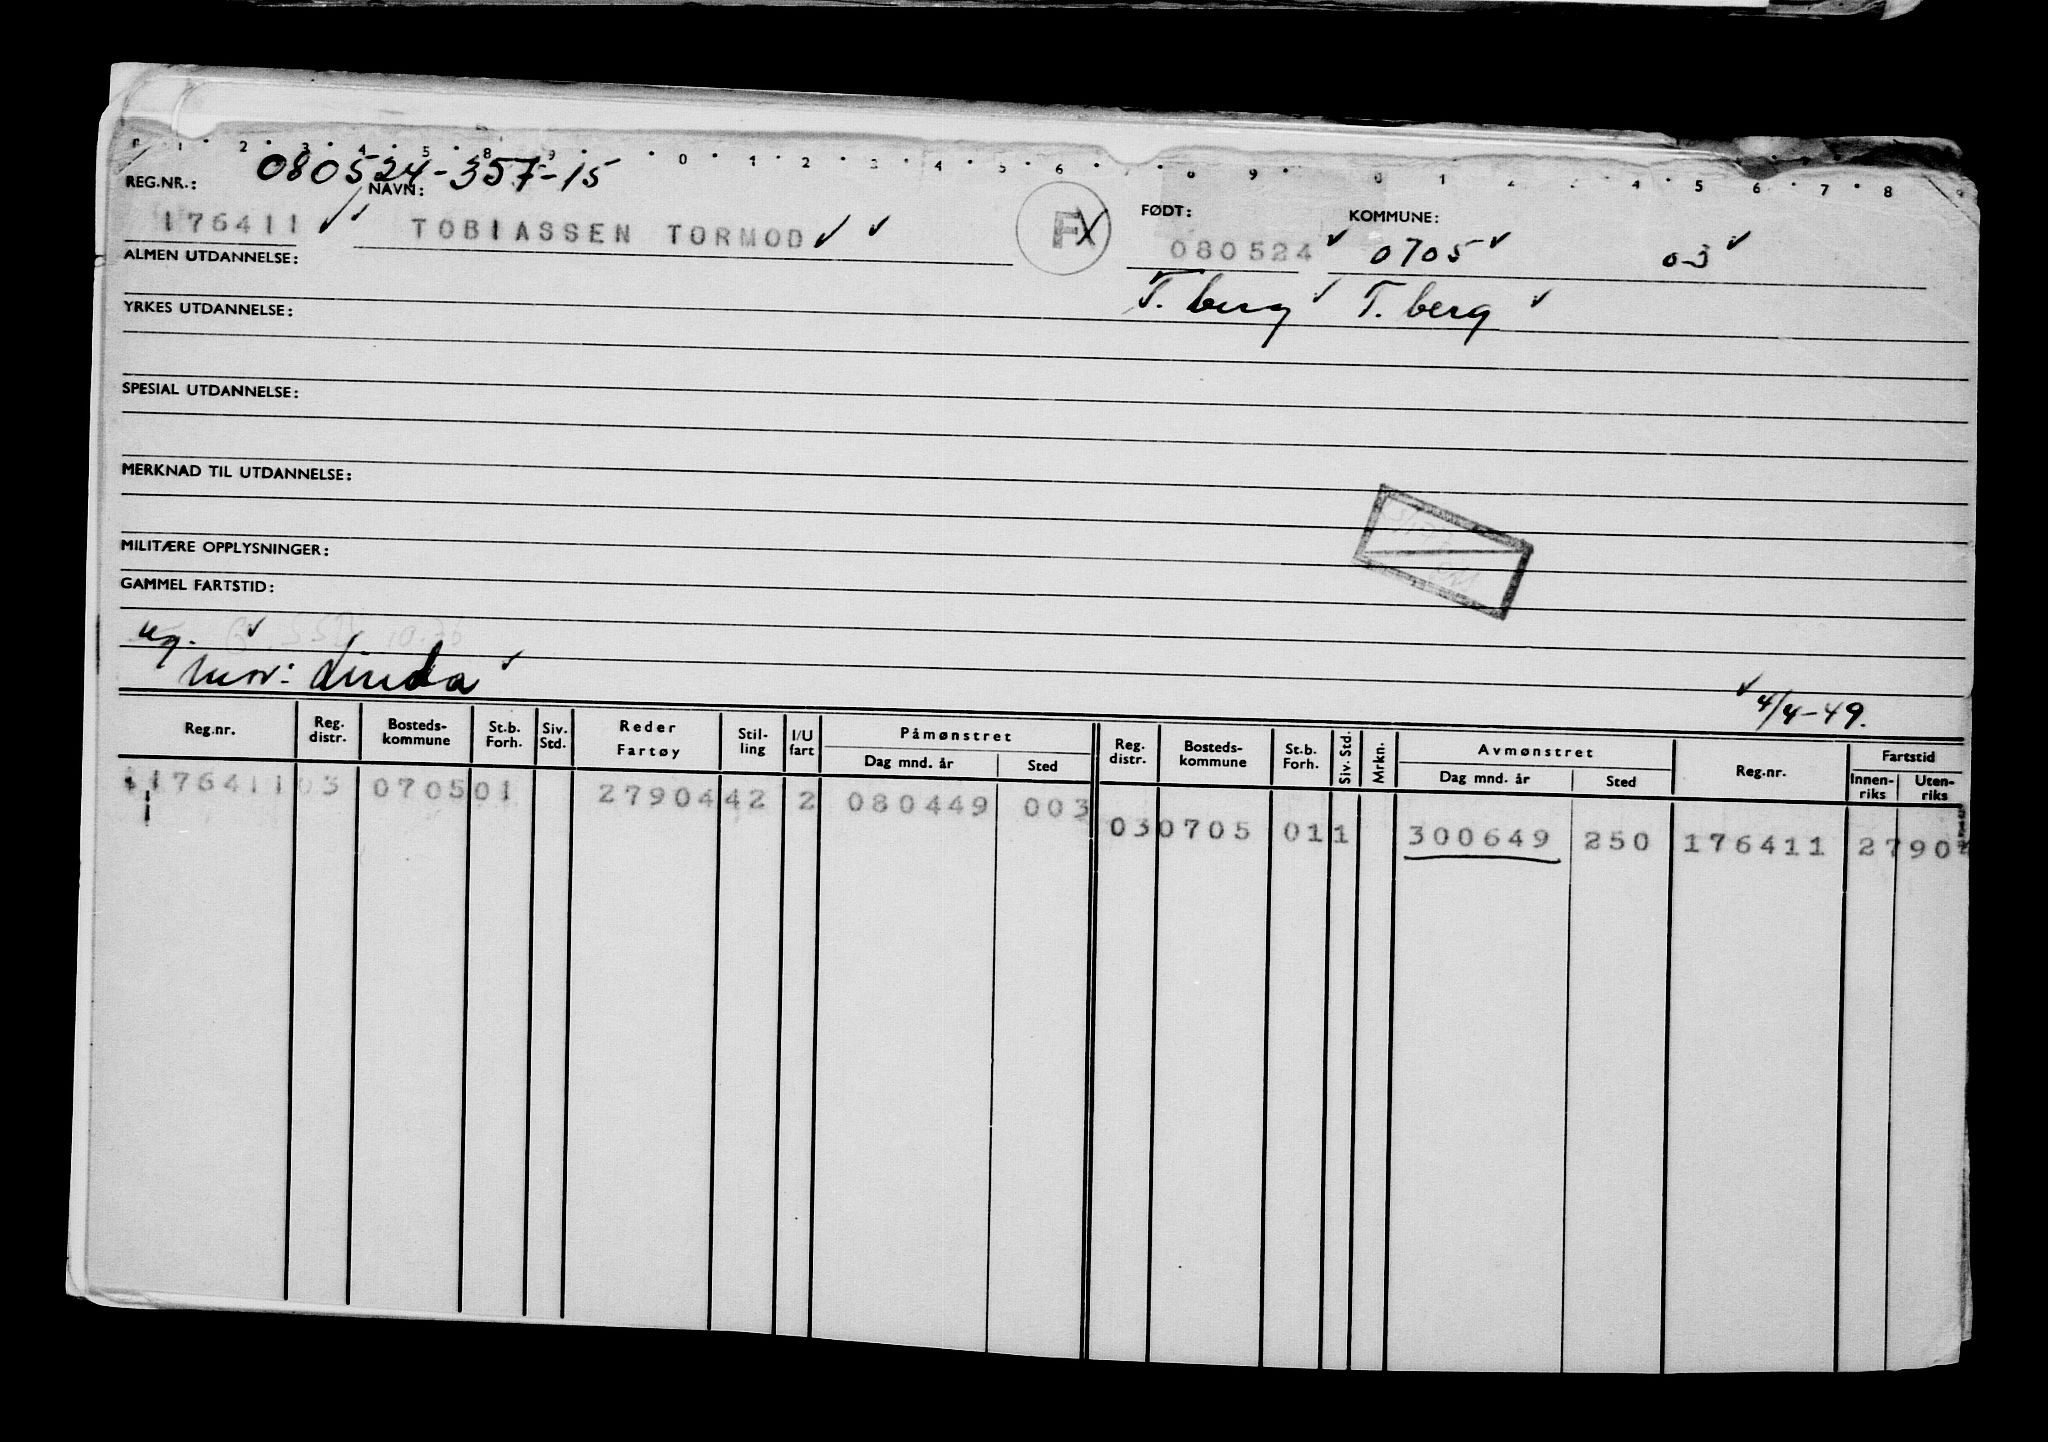 080524-357-15
REG.NR.: NAVN: FØDT: KOMMUNE:
176411 TOBIASSEN TORMOD F 080524 0705 03
ALMEN UTDANNELSE:
T. berg T. berg
YRKES UTDANNELSE:
SPESIAL UTDANNELSE:
MERKNAD TIL UTDANNELSE:
MILITÆRE OPPLYSNINGER:
GAMMEL FARTSTID:
ug.
Mor: Linda
4/4-49.
Reg.nr. Reg. distr. Bosteds-kommune St.b. Forh. Siv. Std. Reder Fartøy Stil-ling I/U fart Påmønstret Dag mnd. år Sted Reg. distr. Bosteds-kommune St.b. Forh. Siv. Std. Mrkn. Avmønstret Dag mnd. år Sted Reg.nr. Fartstid Innen-riks Uten-riks
176411 03 0705 01 27904 42 2 080449 003 03 0705 01 1 300649 250 176411 2790